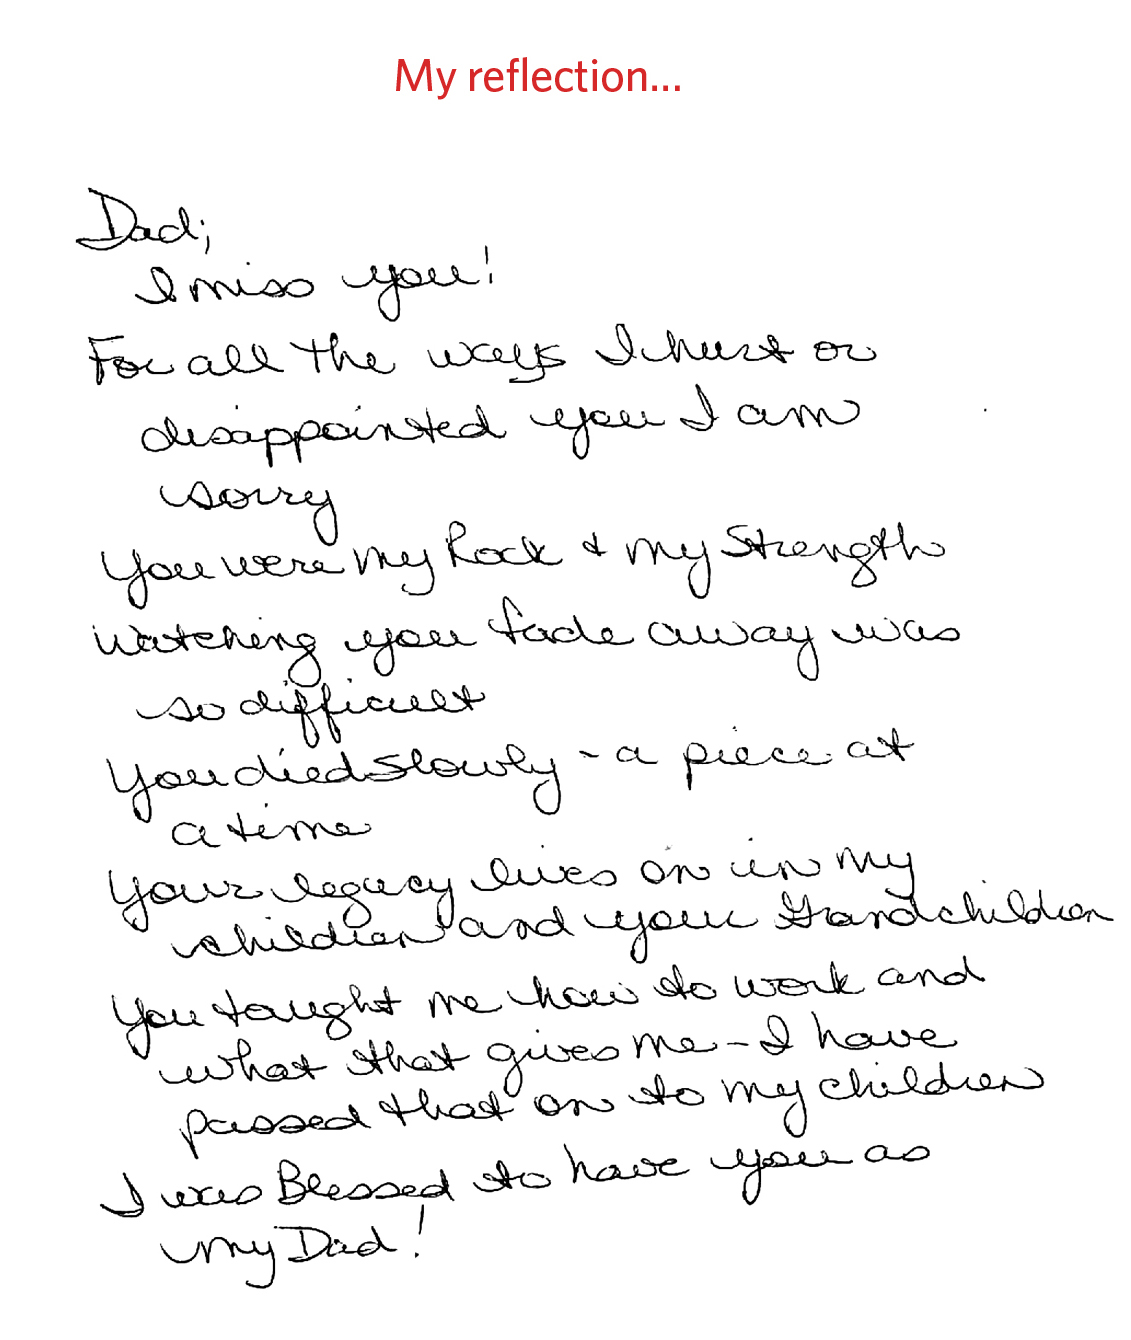 My reflection...
Dad;
I miss you!
For all the ways I hurt or
disappointed you I am
sorry
You were my Rock & my Strength
Watching you fade away was
so difficult
You died slowly - a piece at
a time
Your legacy lives on in my
children and your Grandchildren
You taught me how to work and
what that gives me - I have
passed that on to my children
I was Blessed to have you as
my Dad!